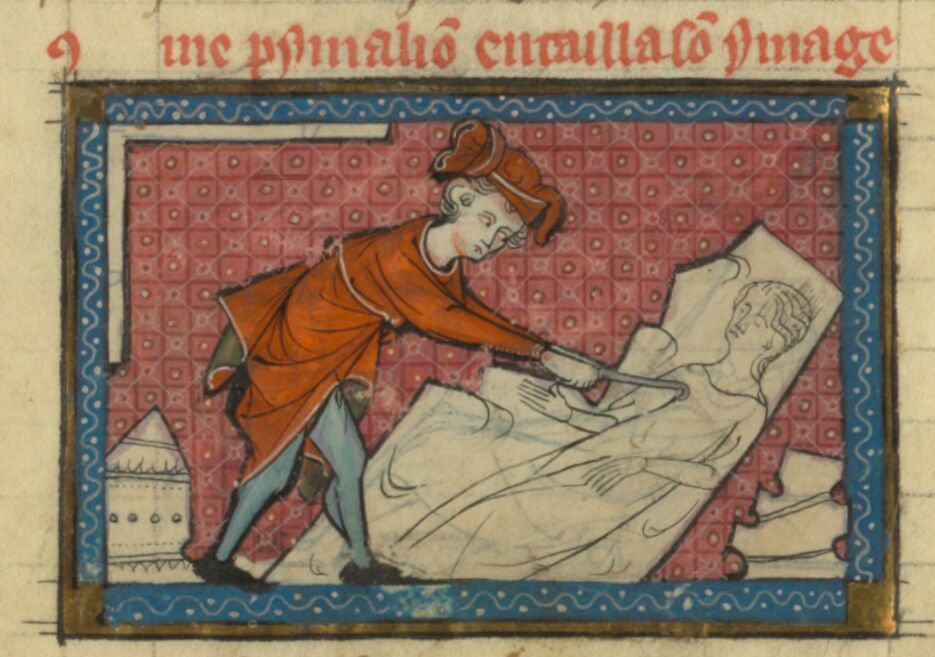 ꝯ me pymaliõ entailla sõ ymage